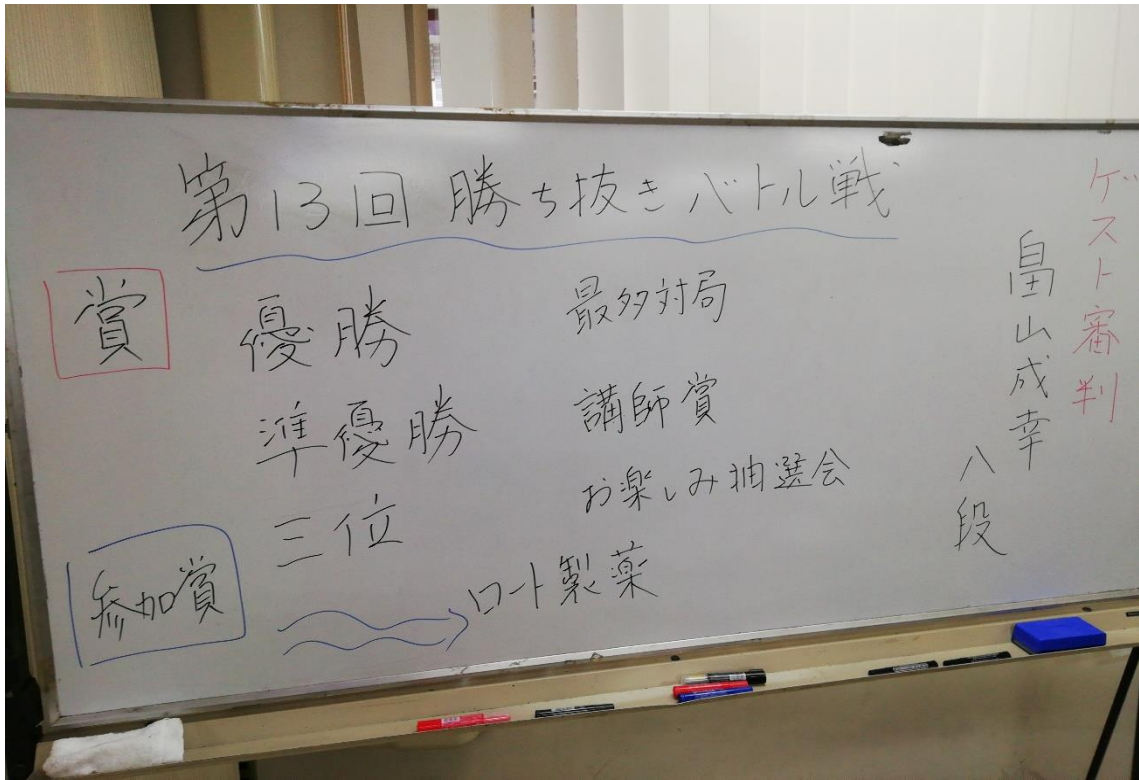 第13回 勝ち抜きバトル戦
賞
優勝
準優勝
三位
最多対局
講師賞
お楽しみ抽選会
参加賞
ロート製薬
ゲスト審判
畠山成幸
八段